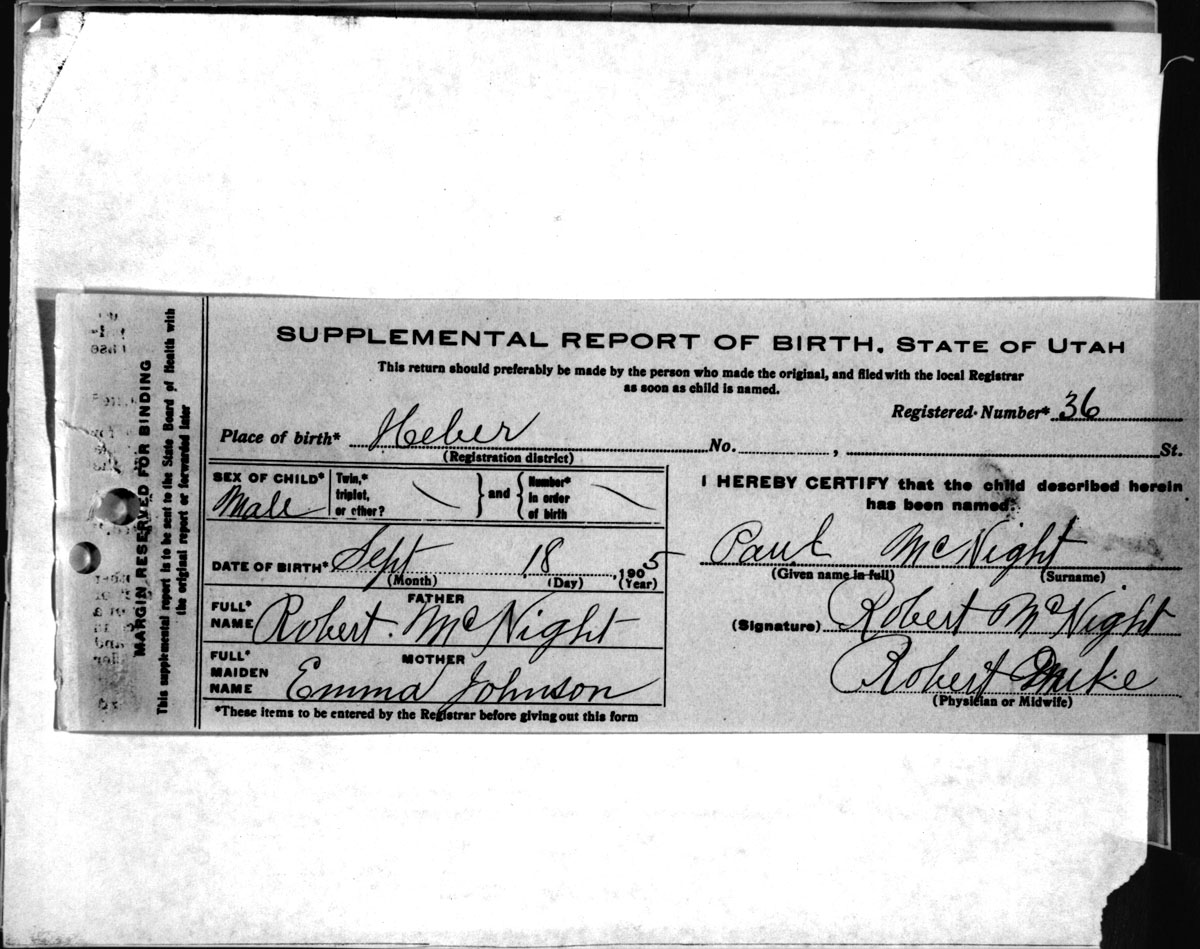 SUPPLEMENTAL REPORT OF BIRTH, STATE OF UTAH
This return should preferably be made by the person who made the original, and filed with the local Registrar
as soon as child is named.
Registered Number* 36
Place of birth* Heber No. , St.
(Registration district)
SEX OF CHILD* Male
Twin,* triplet, or other? } and { Number* in order of birth
DATE OF BIRTH* Sept 18, 1905
(Month) (Day) (Year)
FATHER
FULL* NAME Robert. McNight
MOTHER
FULL* MAIDEN NAME Emma Johnson
*These items to be entered by the Registrar before giving out this form
I HEREBY CERTIFY that the child described herein
has been named:
Paul McNight
(Given name in full) (Surname)
(Signature) Robert McNight
Robert
(Physician or Midwife)
MARGIN RESERVED FOR BINDING
This supplemental report is to be sent to the State Board of Health with
the original report or forwarded later